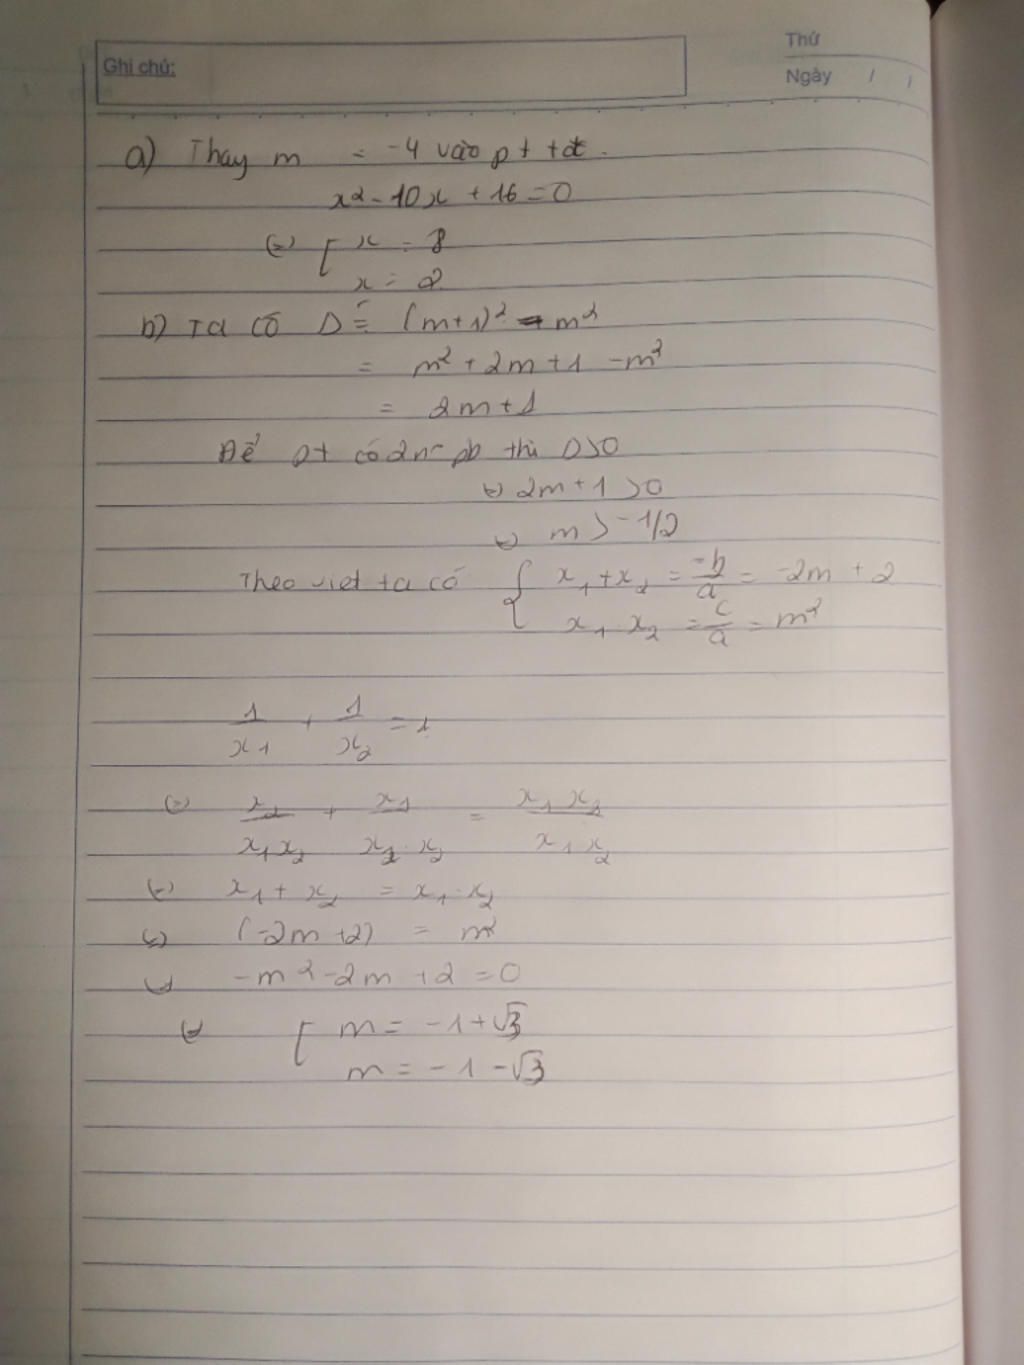 Thứ
Ghi chú:
Ngày / /
a) Thay m = -4 vào pt tđ.
x² - 10x + 16 = 0
(=) [ x = 8
x = 2
b) Ta có Δ' = (m+1)² - m²
= m² + 2m + 1 - m²
= 2m + 1
Để pt có 2n⁰ pb thì Δ>0
(=) 2m + 1 >0
(=) m > -1/2
Theo viet ta có { x₁ + x₂ = -b/a = -2m + 2
x₁ . x₂ = c/a = m²
1/x₁ + 1/x₂ = 1
(=) x₂/x₁x₂ + x₁/x₁.x₂ = x₁ x₂/x₁ x₂
(=) x₁ + x₂ = x₁ . x₂
(=) (-2m +2) = m²
(=) -m² -2m +2 = 0
(=) [ m = -1 + √3
m = -1 - √3